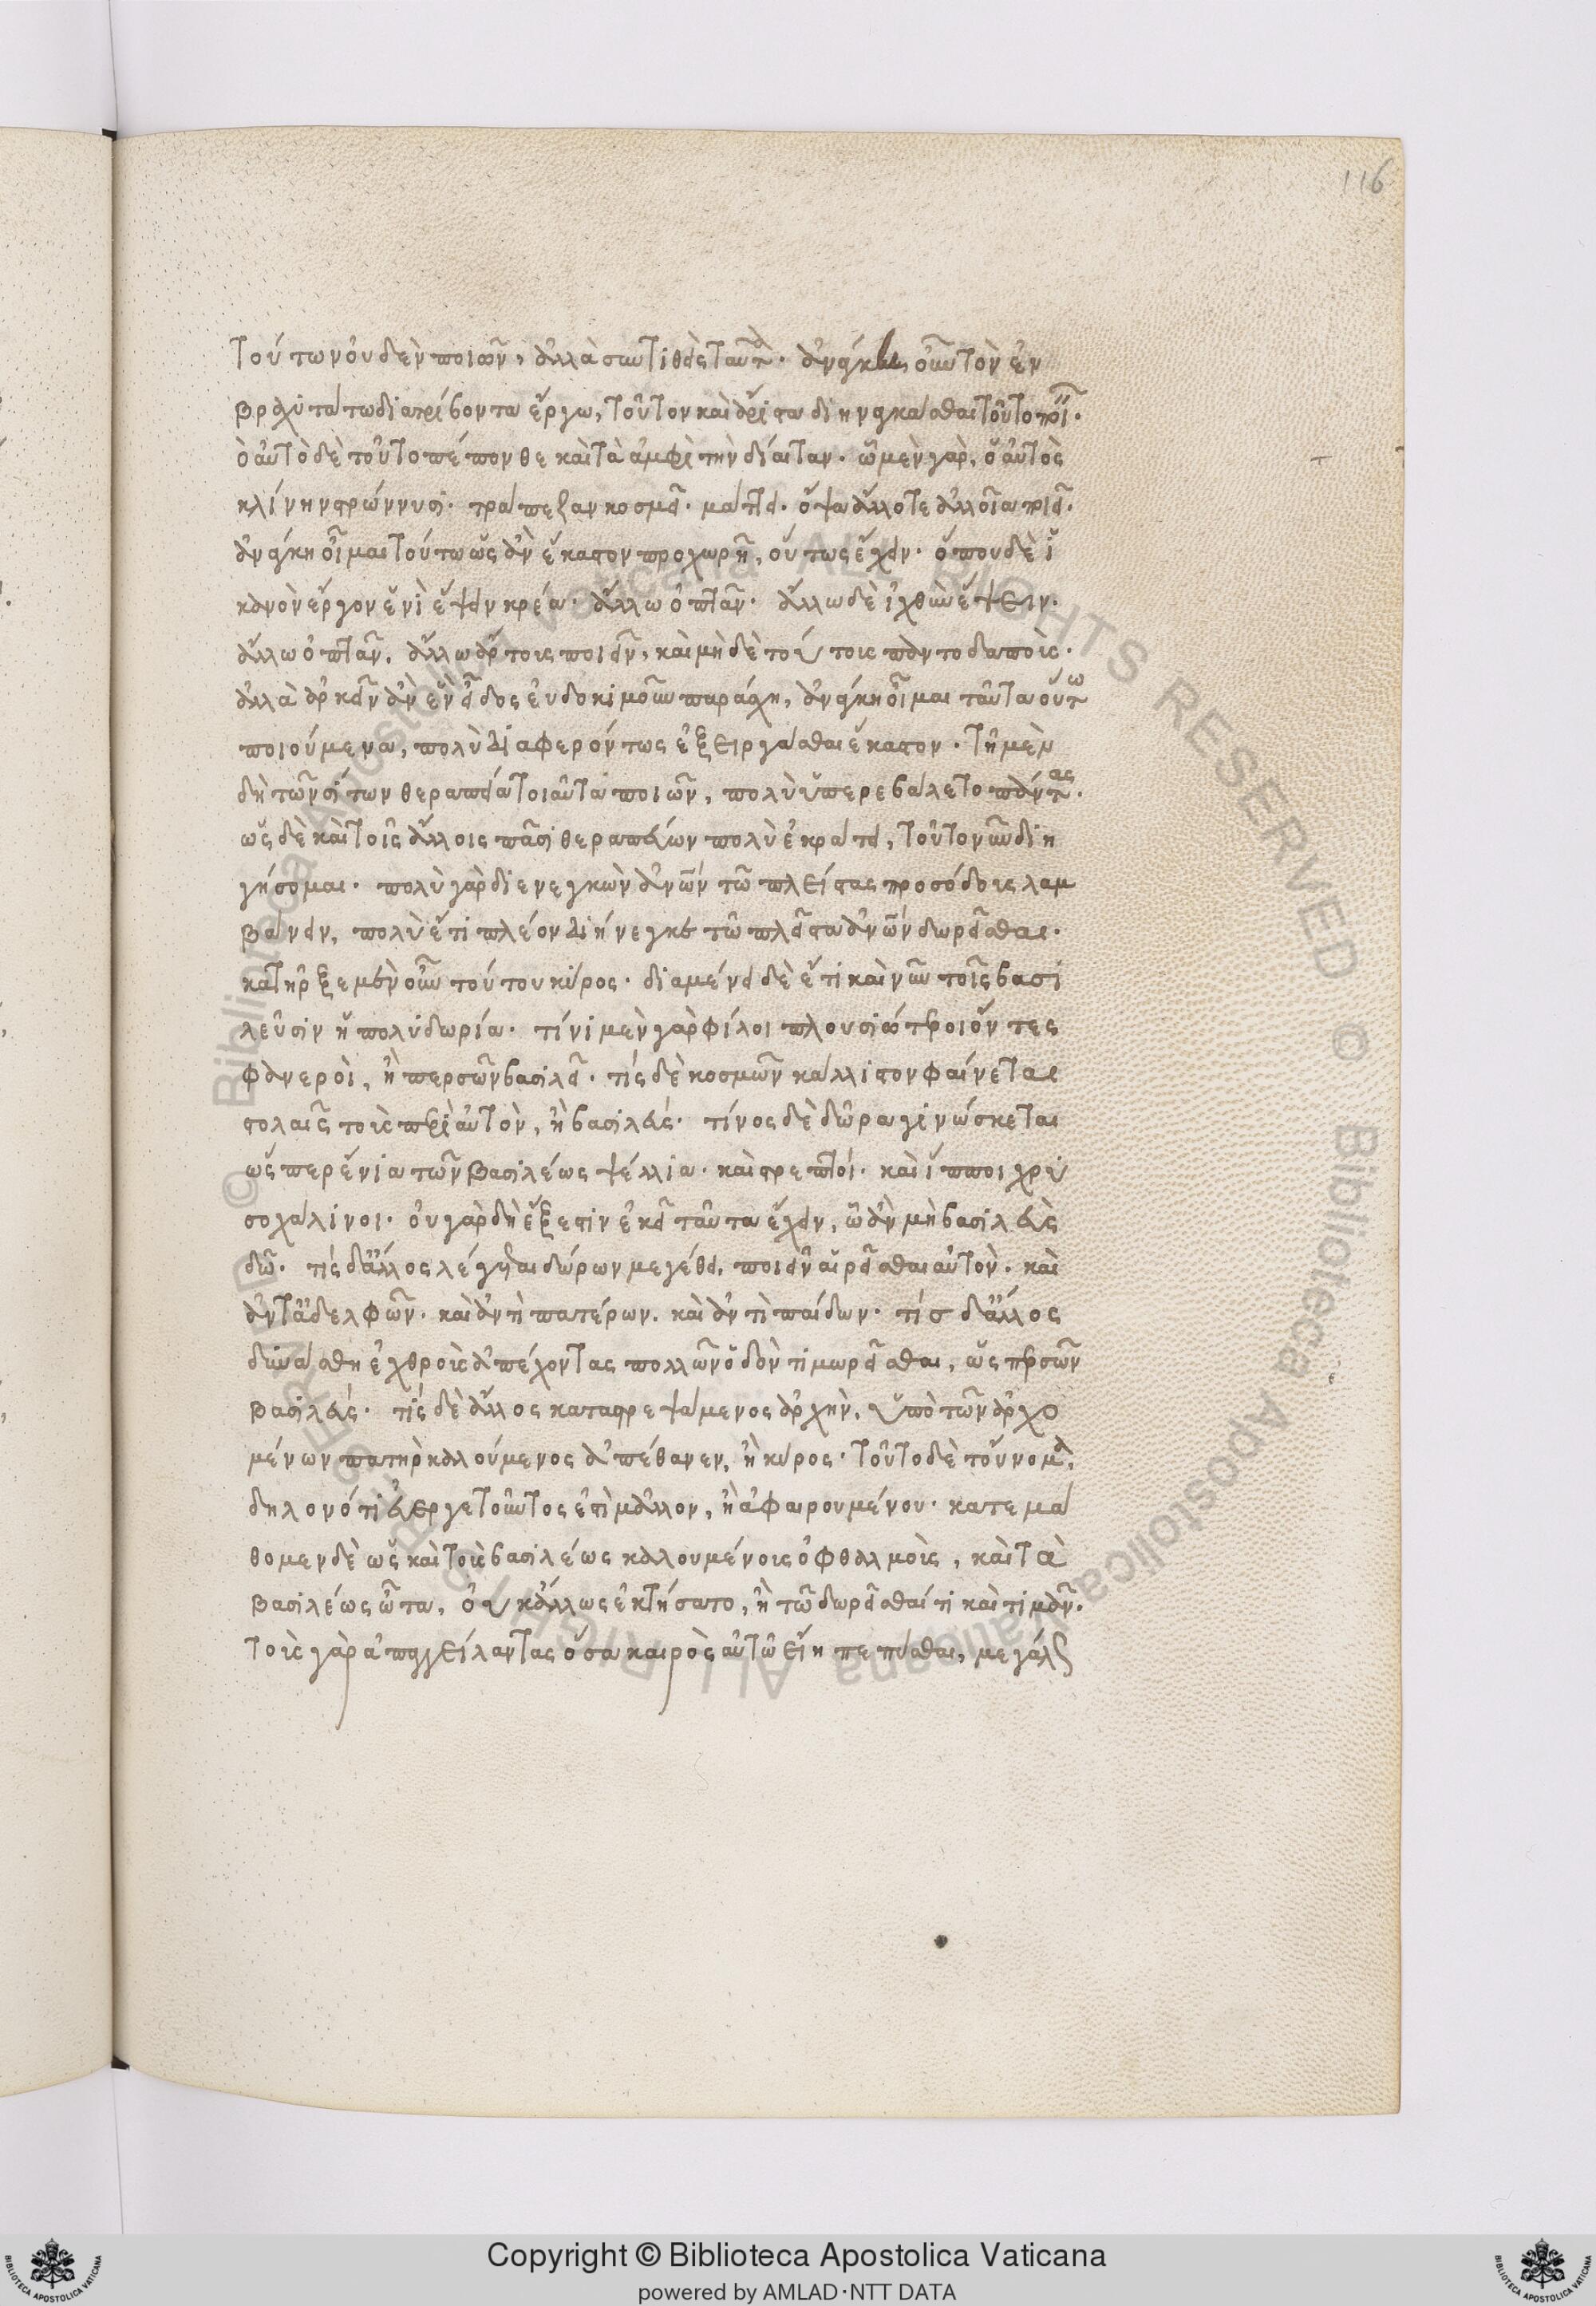 116
τούτων οὐδὲν ποιῶν, ἀλλὰ συντιθεὶς ταῦτα. ἀνάγκη οὖν τὸν ἐν
βραχυτάτω διατρίβοντα ἔργω, τοῦτον καὶ ἄριστα διηναγκάσθαι τοῦτο ποιεῖ.
ὁ αὐτὸ δὲ τοῦτο πέπονθε καὶ τὰ ἀμφὶ τὴν δίαιταν. ὧ μὲν γὰρ, ὁ αὐτὸς
κλίνην στρώννυσι. τράπεζαν κοσμεῖ. μάττει. ὄψα ἄλλοτε ἀλλοῖα ποιεῖ.
ἀνάγκη οἶμαι τούτω ὡς ἂν ἕκαστον προχωρῆ, οὕτως ἔχειν. ὅπου δὲ ἱ
κανὸν ἔργον ἑνὶ ἕψειν κρέα. ἄλλω ὀπτᾶν. ἄλλω δὲ ἰχθὺν ἕψειν.
ἄλλω ὀπτᾶν. ἄλλω ἄρτους ποιεῖν, καὶ μὴ δὲ τούτους παντοδαποὺς.
ἀλλὰ ἀρκεῖν ἂν ἓν εἶδος εὐδοκιμοῦν παράσχη, ἀνάγκη οἶμαι ταῦτα οὕτω
ποιούμενα, πολὺ διαφερόντως ἐξειργάσθαι ἕκαστον. τῆ μὲν
δὴ τῶν σίτων θεραπεία τοιαῦτα ποιῶν, πολὺ ὑπερεβάλετο πάντας.
ὡς δὲ καὶ τοῖς ἄλλοις πᾶσι θεραπεύων πολὺ ἐκράτει, τοῦτο νῦν διη
γήσομαι. πολὺ γὰρ διενεγκὼν ἀνων τῶ πλείστας προσόδους λαμ
βάνειν, πολὺ ἔτι πλέον διήνεγκε τῶ πλεῖστα ἀνων δωρεῖσθαι.
κατῆρξε μὲν οὖν τούτου κύρος. διαμένει δὲ ἔτι καὶ νῦν τοῖς βασι
λεῦσιν ἡ πολυδωρία. τίνι μὲν γὰρ φίλοι πλουσιώτεροι ὄντες
φανεροὶ, ἢ περσῶν βασιλεῖ. τίς δὲ κοσμῶν κάλλιστον φαίνεται
στολαῖς τοὺς περὶ αὐτὸν, ἢ βασιλεύς. τίνος δὲ δῶρα γινώσκεται
ὥσπερ ἔνια τῶν βασιλέως ψέλλια. καὶ στρεπτοί. καὶ ἵπποι χρυ
σοχάλινοι. οὐ γὰρ δὴ ἔξεστιν ἐκεῖ ταῦτα ἔχειν, ὧ ἂν μὴ βασιλεὺς
δῶ. τίς δ' ἄλλος λέγεται δώρων μεγέθει, ποιεῖν αἱρεῖσθαι αὐτὸν. καὶ
ἀντ' ἀδελφῶν. καὶ ἀντὶ πατέρων. καὶ ἀντὶ παίδων. τίς δ' ἄλλος
δυνάσθη ἐχθροὺς ἀπέχοντας πολλῶν ὁδὸν τιμωρεῖσθαι, ὡς περσῶν
βασιλεύς. τίς δὲ ἄλλος καταστρεψάμενος ἀρχὴν, ὑπὸ τῶν ἀρχο
μένων πατὴρ καλούμενος ἀπέθανεν, ἢ κύρος. τοῦτο δὲ τοὔνομα,
δηλονότι εὐεργετοῦντος ἐστὶ μᾶλλον, ἢ ἀφαιρουμένου. κατεμά
θομεν δὲ ὡς καὶ τοὺς βασιλέως καλουμένους ὀφθαλμοὺς, καὶ τὰ
βασιλέως ὦτα, οὐκ ἄλλως ἐκτήσατο, ἢ τῶ δωρεῖσθαί τι καὶ τιμᾶν.
τοὺς γὰρ ἀπαγγείλαντας ὅσα καιρὸς αὐτῶ εἴη πεπύσθαι, μεγάλως
© Biblioteca Apostolica Vaticana ALL RIGHTS RESERVED
Copyright © Biblioteca Apostolica Vaticana
powered by AMLAD·NTT DATA